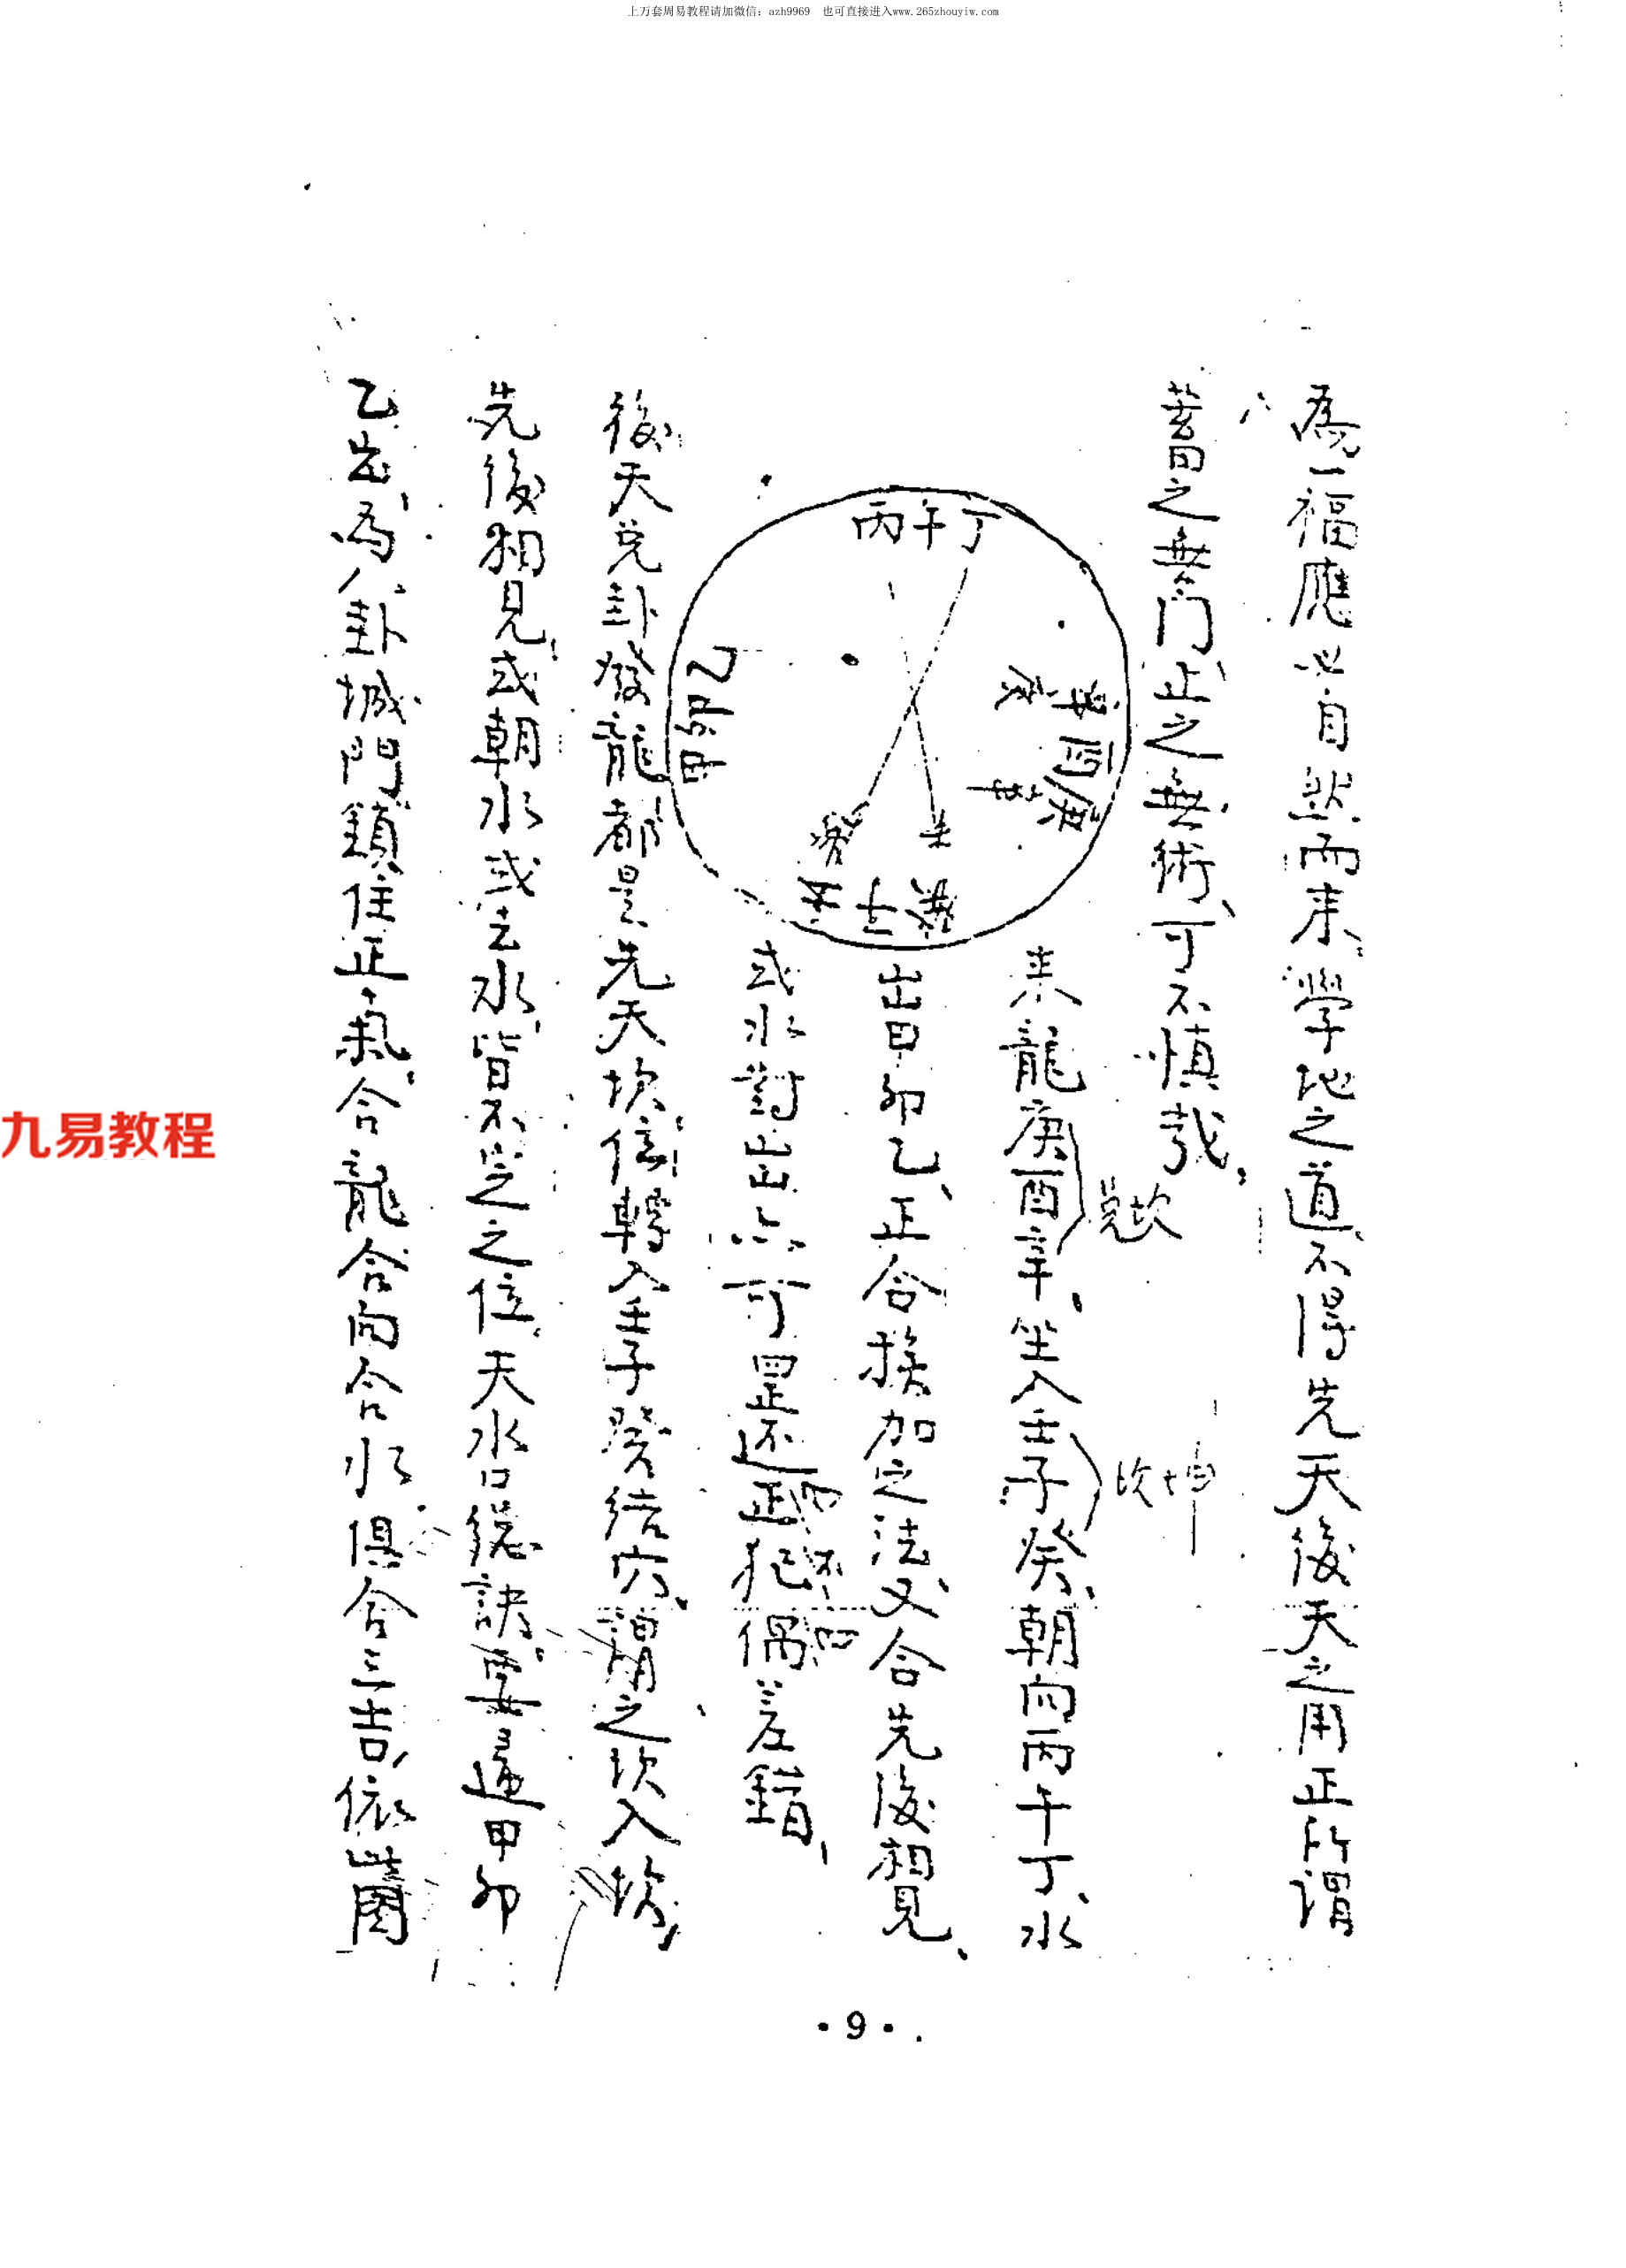 上万套周易教程请加微信：azh9969 也可直接进入www.265zhouyiw.com
為一福應必自然而来、學地之道、不得先天後天之用正所謂
蓄之無门、止之無術、可不慎哉、
来龍庚酉辛、坐入壬子癸、朝向丙午丁、水
兑坎
坎坤
出甲卯乙、正合挨加之法、又合先後相見、
或水對出亦可 罡还正犯偶差錯、
丙午丁
後天兑卦發龍、都是先天坎位、轉入壬子癸结穴、謂之坎入坎，
先後相見、或朝水或去水、皆不出之位、天水口总訣、要逼甲卯
乙出、為八卦城門鎖住正氣、合龍合向合水俱合三吉，依此圖
九易教程
·9·